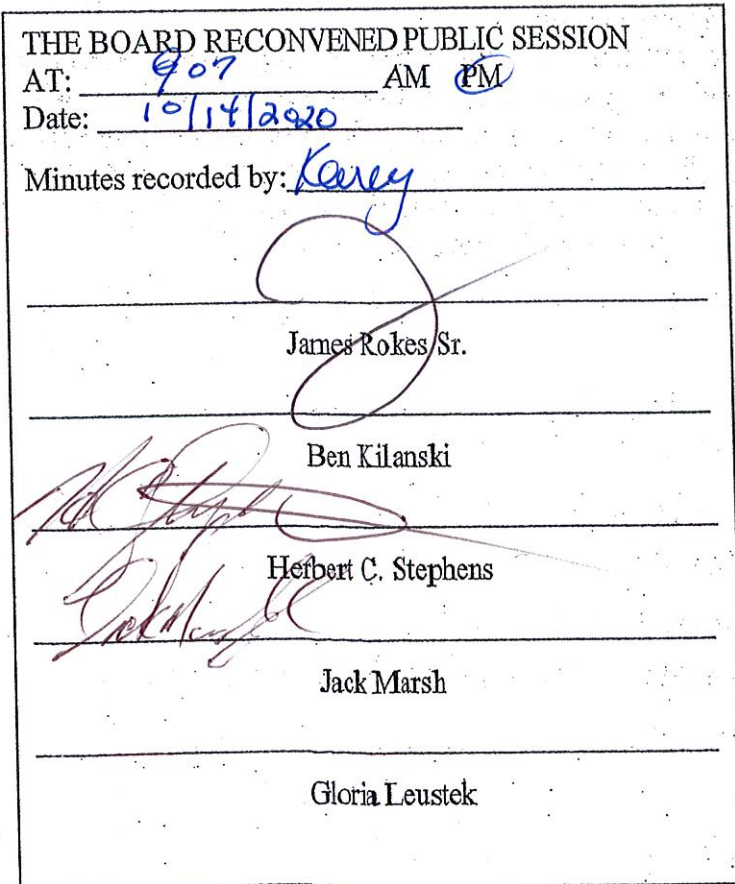 THE BOARD RECONVENED PUBLIC SESSION
AT: 907 AM PM
Date: 10/14/2020
Minutes recorded by:
James Rokes Sr.
Ben Kilanski
Herbert C. Stephens
Jack Marsh
Gloria Leustek